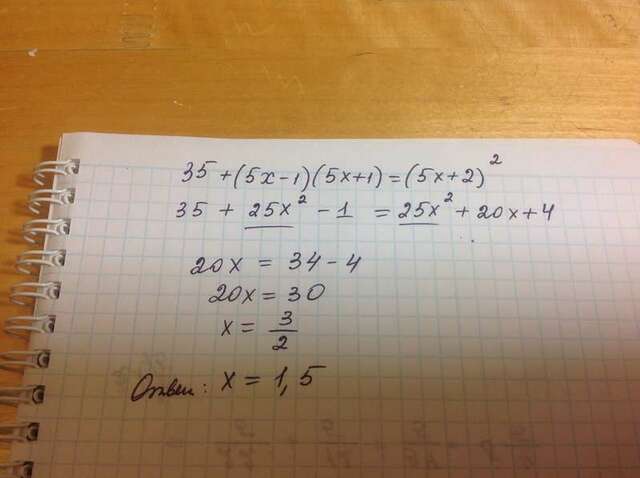 35 + (5x-1)(5x+1) = (5x+2)²
35 + 25x² - 1 = 25x² + 20x + 4
20x = 34 - 4
20x = 30
x = 3/2
Ответ: x = 1,5